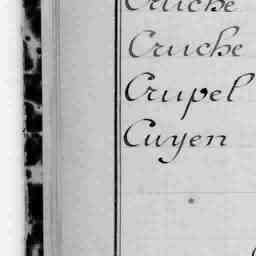 Cruche
Cruche
Crupel
Cuyen